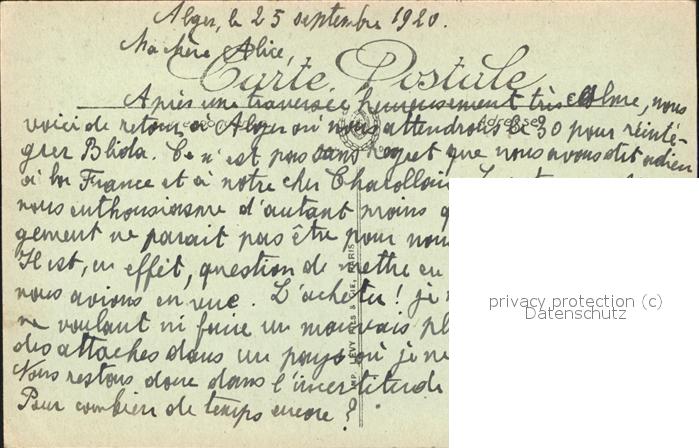 Alger, le 25 septembre 1920.
Ma chère Alice,
Carte Postale
Après une traversée heureusement très calme, nous
voici de retour à Alger où nous attendrons le 30 pour réinté-
Adresse
grer Blida. Ce n'est pas sans regret que nous avons dit adieu
à la France et à notre cher Charollais
nous enthousiasme d'autant moins q
gement ne parait pas être pour nou
Il est, en effet, question de mettre en
nous avions en vue. L'acheter! je n
ne voulant ni faire un mauvais pl
des attaches dans un pays où je ne
Nous restons donc dans l'incertitude
Pour combien de temps encore?
IMP. LÉVY FILS & CIE, PARIS
privacy protection (c)
Datenschutz